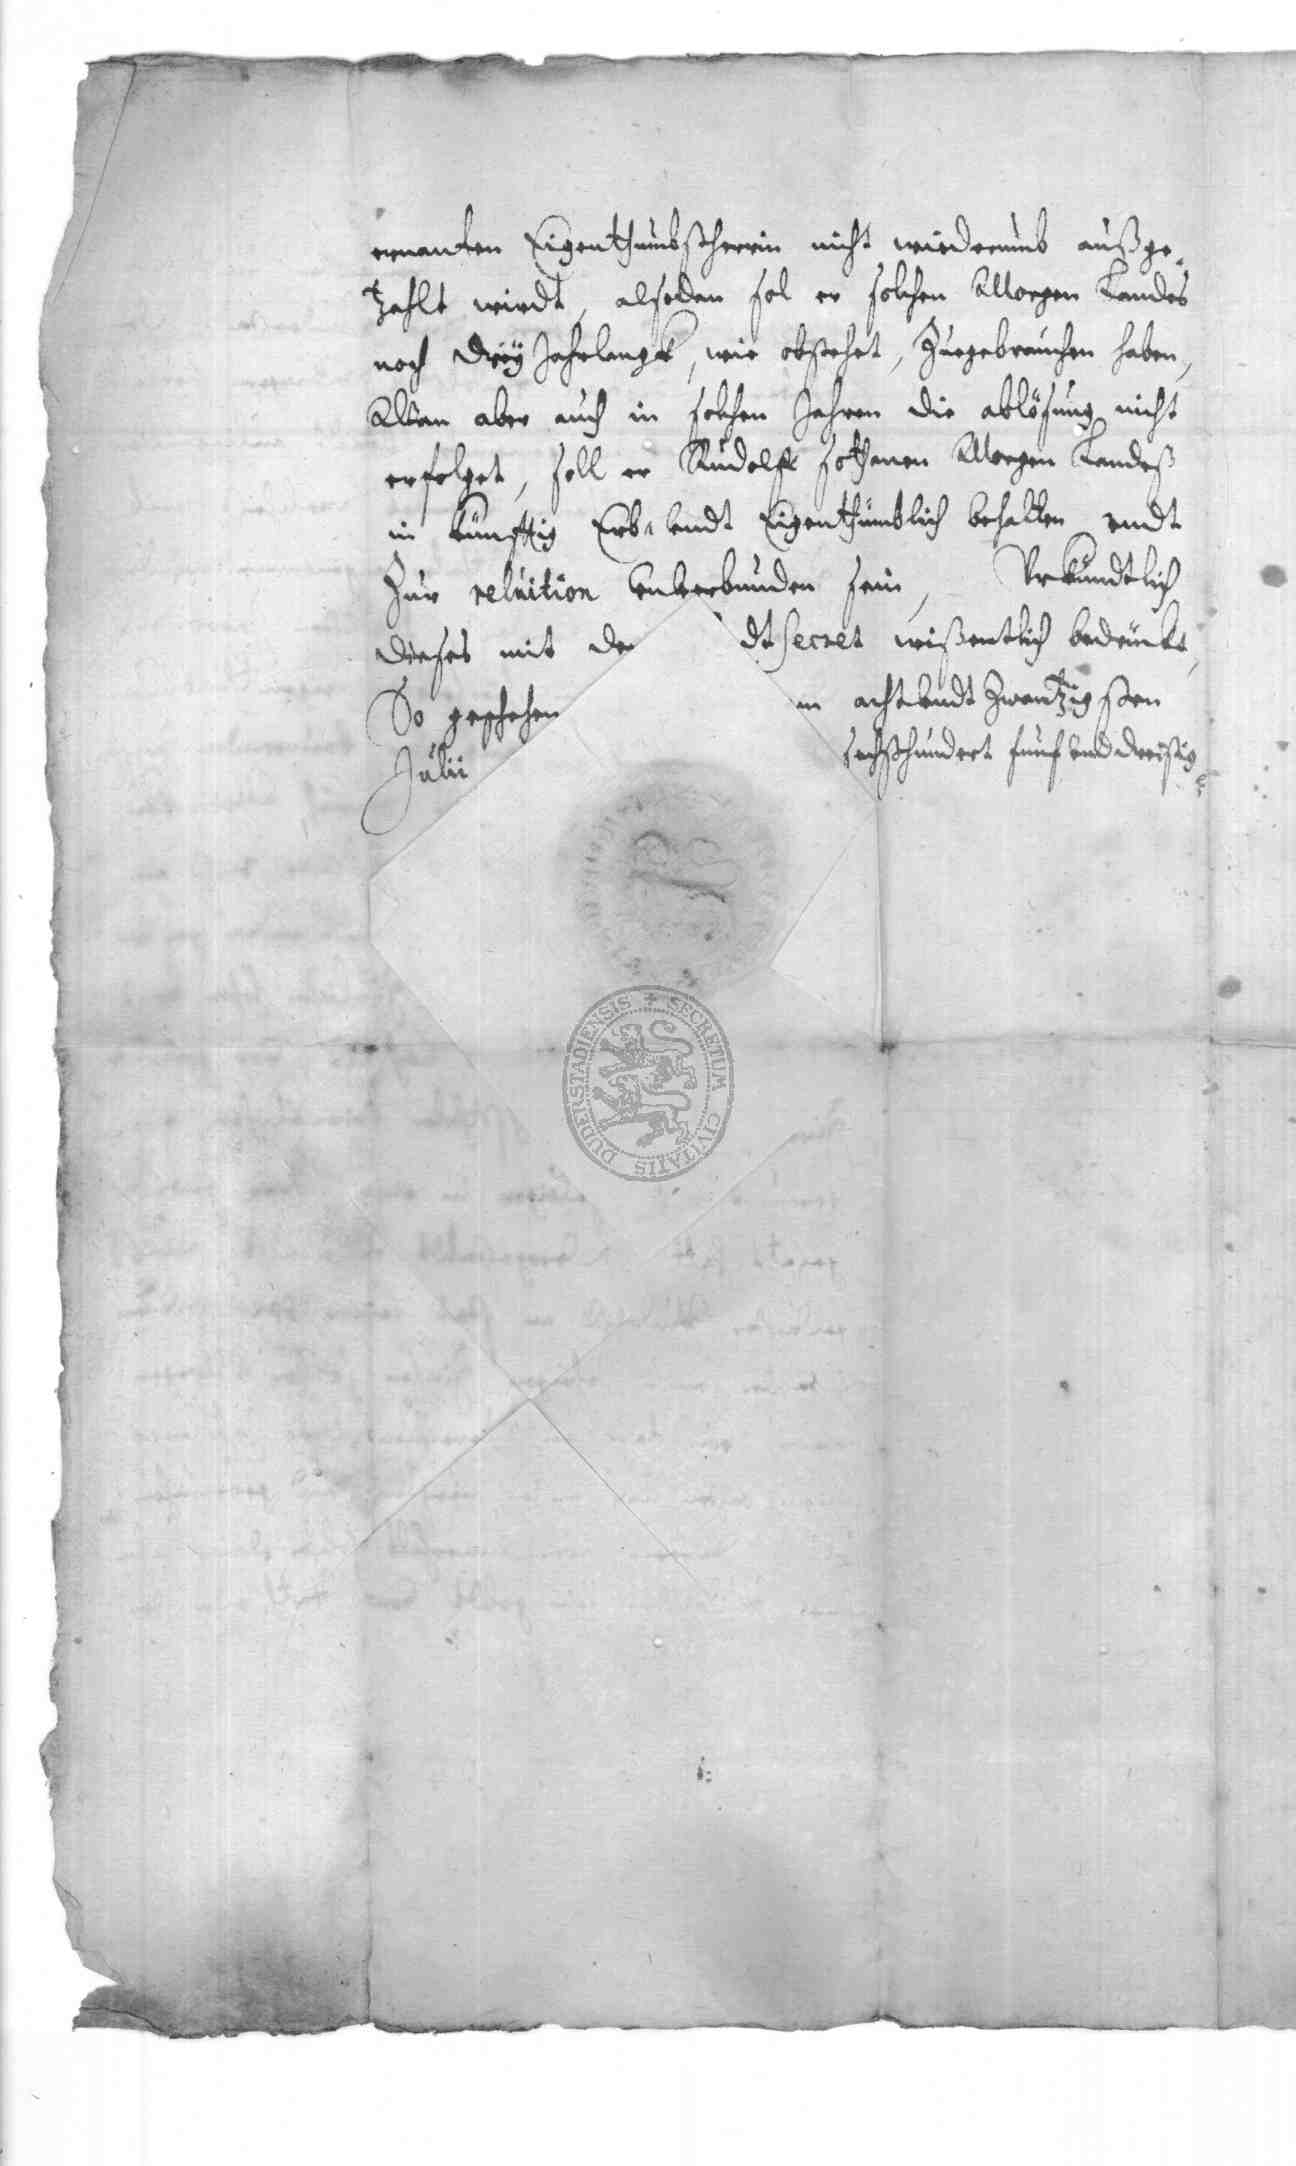 ernanten Eigenthumbßherrin nicht wiederumb außge-
zahlt wirdt, alsodan sol er solchen Morgen Landes
noch dreÿ Jahrlangk, wie obstehet, Zuegebrauchen haben,
Wan aber auch in solchen Jahren die ablösung nicht
erfolget, soll er Rudolff sothanen Morgen Landeß
in künfftig Erb- undt Eigenthümblich behalten undt
Zur reluition unverbunden sein, Vrkundtlich
dieses mit de dt secret wißentlich bedrückt,
So geschehen m acht undt Zwantzigsten
Julii sechßhundert funf und dreißig
DUDERSTADIENSIS + SECRETUM CIVITATIS